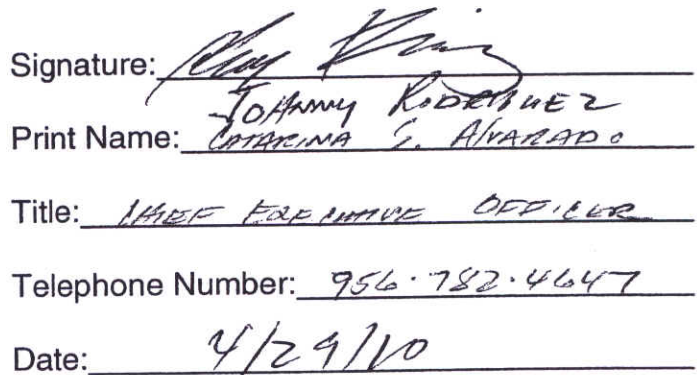 Signature:
Johnny Rodriguez
Print Name: Catarina S. Alvarado
Title: Chief Executive Officer
Telephone Number: 956.782.4647
Date: 4/29/10